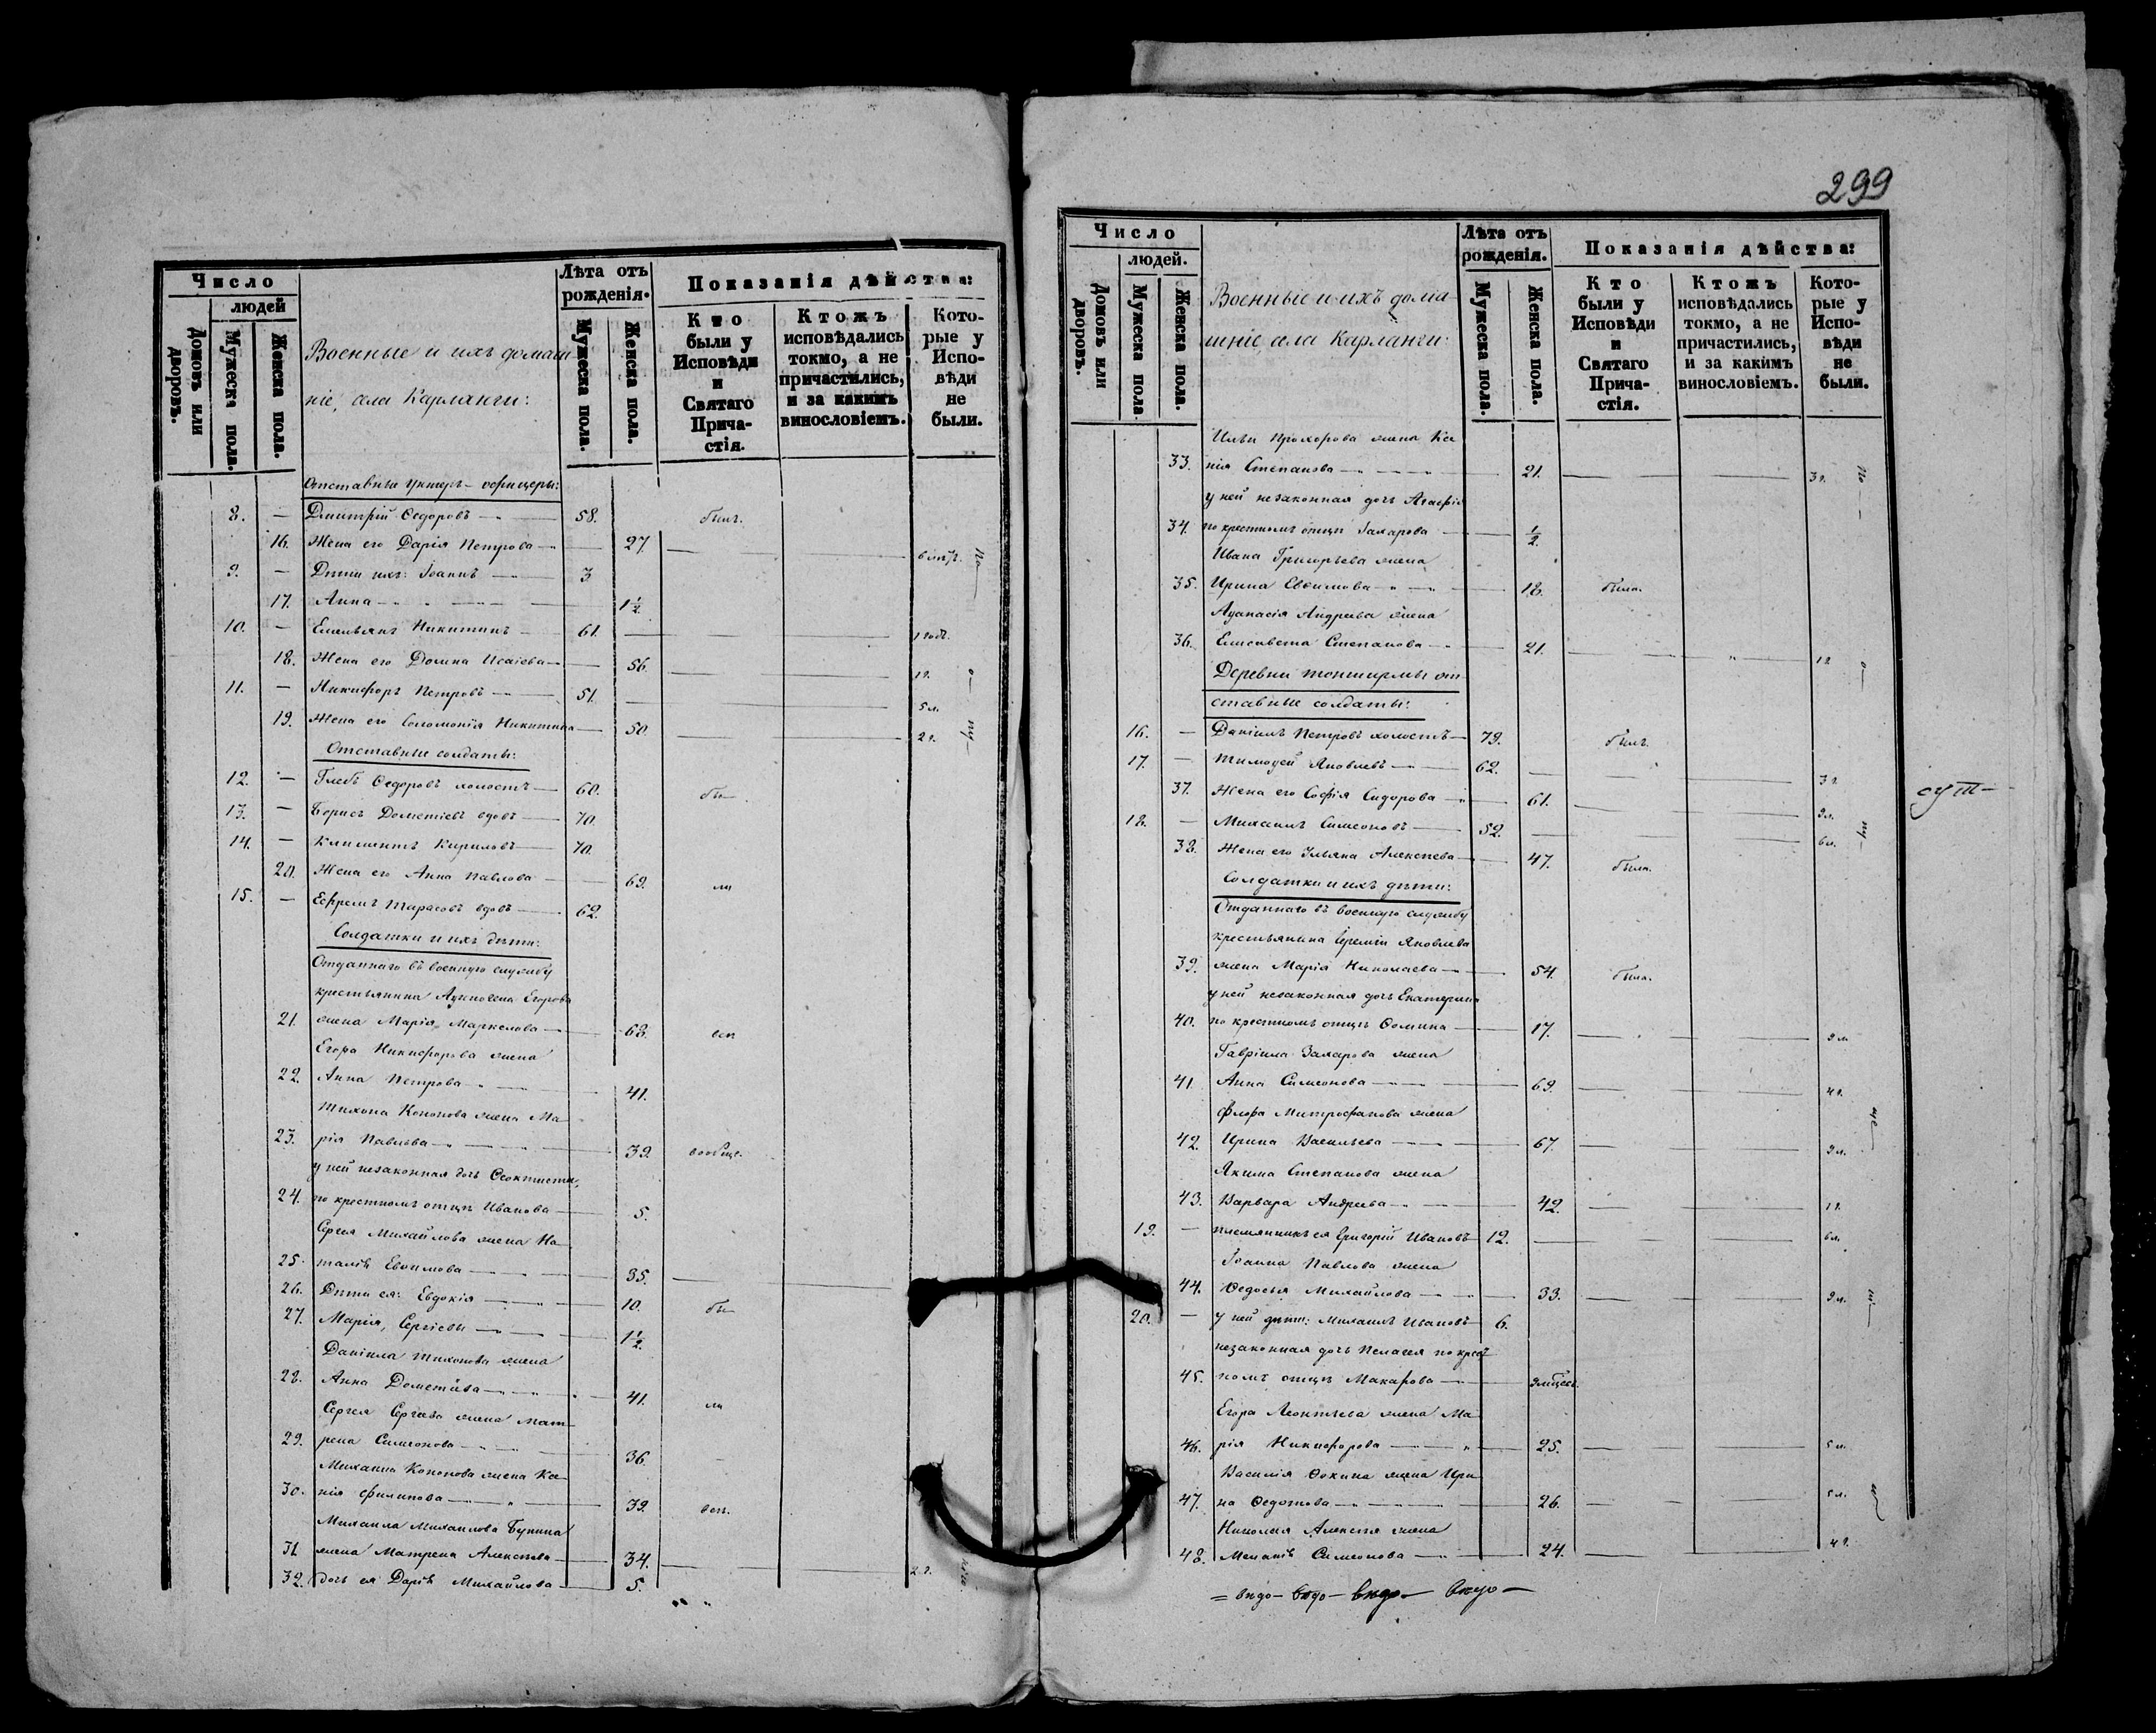 Число
людей
Домовъ или дворовъ.
Мужеска пола.
Женска пола.
Военные и ихъ домаш
ніе, села Карланги:
Лѣта отъ рожденія.
Мужеска пола.
Женска пола.
Показанія дѣйства:
Кто были у Исповѣди и Святаго Прича-стія.
Ктожъ исповѣдались токмо, а не причастились, и за какимъ винословіемъ.
Кото-рые у Испо-вѣди не были.
Отставные Унтеръ-офицеры:
8. — Дмитрій Ѳедоровъ — 58. былъ.
16. Жена его Дарія Петрова — 27.
9. — Дѣти ихъ: Іоаннъ — 3
17. Анна — 1½
10. — Емельянъ Никитинъ — 61. — 1 годъ.
18. Жена его Домна Исаіева — 56. — 1 г.
11. — Никифоръ Петровъ — 51. — 5 л.
19. Жена его Соломонія Никитина — 50 — 2 г.
Отставные солдаты:
12. — Глебъ Ѳедоровъ холостъ — 60. бы—
13. — Борисъ Дометіевъ вдовъ — 70.
14. — Климентъ Кириловъ — 70.
20. Жена его Анна Павлова — 69. ли
15. — Ефремъ Тарасовъ вдовъ — 62.
Солдатки и ихъ дѣти:
Отданнаго въ военную службу
крестьянина Егорова
21. жена Марія Маркелова — 63. всѣ
Егора Никифорова жена
22. Анна Петрова — 41.
Тихона Кононова жена Ма
23. рія Павлова — 39. вообще.
у ней незаконная дочь Ѳеоктиста,
24. по крестномъ отцѣ Иванова — 5.
Сергея Михайлова жена На
25. талія Евѳимова — 35.
26. Дѣти ея: Евдокія — 10. бы—
27. Марія, Сергіевы — 1½
Даніила Тихонова жена
28. Анна Дометіева — 41. ли
Сергея Сергіева жена Мат—
29. рена Симеонова — 36.
Михаила Кононова жена Ке—
30. нія Филипова — 39. всѣ.
Михаила Михаилова Бунина
31 жена Матрена Алексѣева — 34. — 2 г.
32. дочь ея Дарія Михайлова — 5.
299
Число
людей.
Домовъ или дворовъ.
Мужеска пола
Женска пола.
Военные и ихъ дома
шніе, села Карланги:
Лѣта отъ рожденія.
Мужеска пола.
Женска пола.
Показанія дѣйства:
Кто были у Исповѣди и Святаго Прича-стія.
Ктожъ исповѣдались токмо, а не причастились, и за какимъ винословіемъ.
Кото-рые у Испо-вѣди не были.
Ильи Прохорова жена Ке
33. нія Степанова — 21. — 3 г.
у ней незаконная дочь Агафія
34. по крестномъ отцѣ Захарова — ½.
Ивана Григорьева жена
35. Ирина Евѳимова — 18. была.
Аѳанасія Андреева жена
36. Елисавета Степанова — 21. — 1 г.
Деревни Тоншермы от
ставные солдаты:
16. — Даніилъ Петровъ холостъ — 79. былъ.
17. — Тимоѳей Яковлевъ — 62. — 3 г.
37. Жена его Софія Сидорова — 61. — 9 л.
18. — Михаилъ Симеоновъ — 52. — 6 л.
38. Жена его Ульяна Алексѣева — 47. была.
Солдатки и ихъ дѣти:
Отданнаго въ военную службу
крестьянина Іереміи Яковлева
39. жена Марія Николаева — 54. была.
у ней незаконная дочь Екатерина
40. по крестномъ отцѣ Ѳомина — 17. — 9 л.
Гавріила Захарова жена
41. Анна Симеонова — 69. — 4 г.
Флора Митрофанова жена
42. Ирина Васильева — 67. — 9 л.
Якима Степанова жена
43. Варвара Андреева — 42. — 1 г.
19. — племянникъ ея Григорій Ивановъ — 12. — 6 л.
Іоанна Павлова жена
44. Ѳедосья Михайлова — 33. — 9 л.
20. — у ней дѣти: Михаилъ Ивановъ — 6.
незаконная дочь Пелагея по крест
45. номъ отцѣ Макарова —
Егора Леонтьева жена Ма
46. рія Никифорова — 25. — 5 л.
Василія Ѳокина жена Ири
47. на Ѳедотова — 26. — 5 л.
Николая Алексѣя жена
48. Меланія Симеонова — 24. — 4 г.